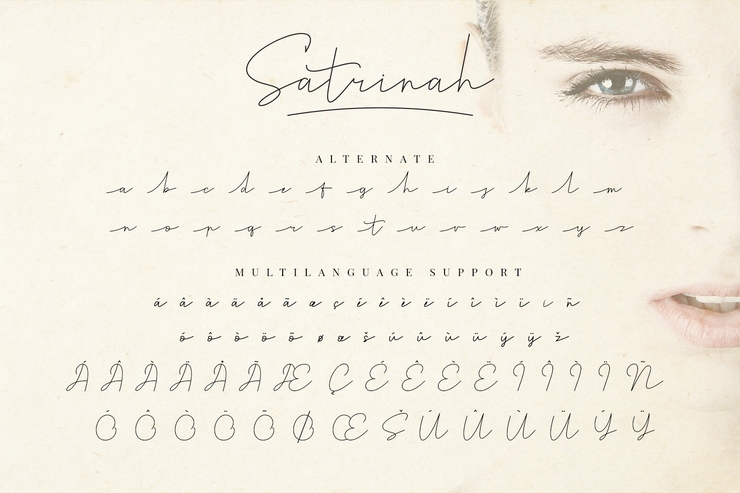 Satrinah
ALTERNATE
a b c d e f g h i j k l m
n o p q r s t u v w x y z
MULTILANGUAGE SUPPORT
á â à ä å ã æ ç é ê è ë í î ì ï ı ñ
ó ô ò ö õ ø œ š ú û ù ü ý ÿ ž
Á Â À Ä Å Ã Æ Ç É Ê È Ë Í Î Ì Ï Ñ
Ó Ô Ò Ö Õ Ø Œ Š Ú Û Ù Ü Ý Ÿ